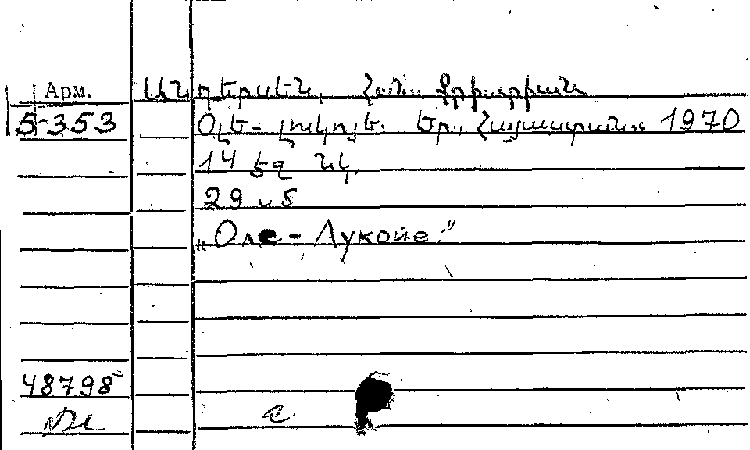 Арм. Անդերսեն, Հանս Քրիստիան
5-353 Օլե-լուկոյե. Եր., Հայաստան, 1970
14 եզ նկ.
29 սմ
„Оле-Лукойе."
48798